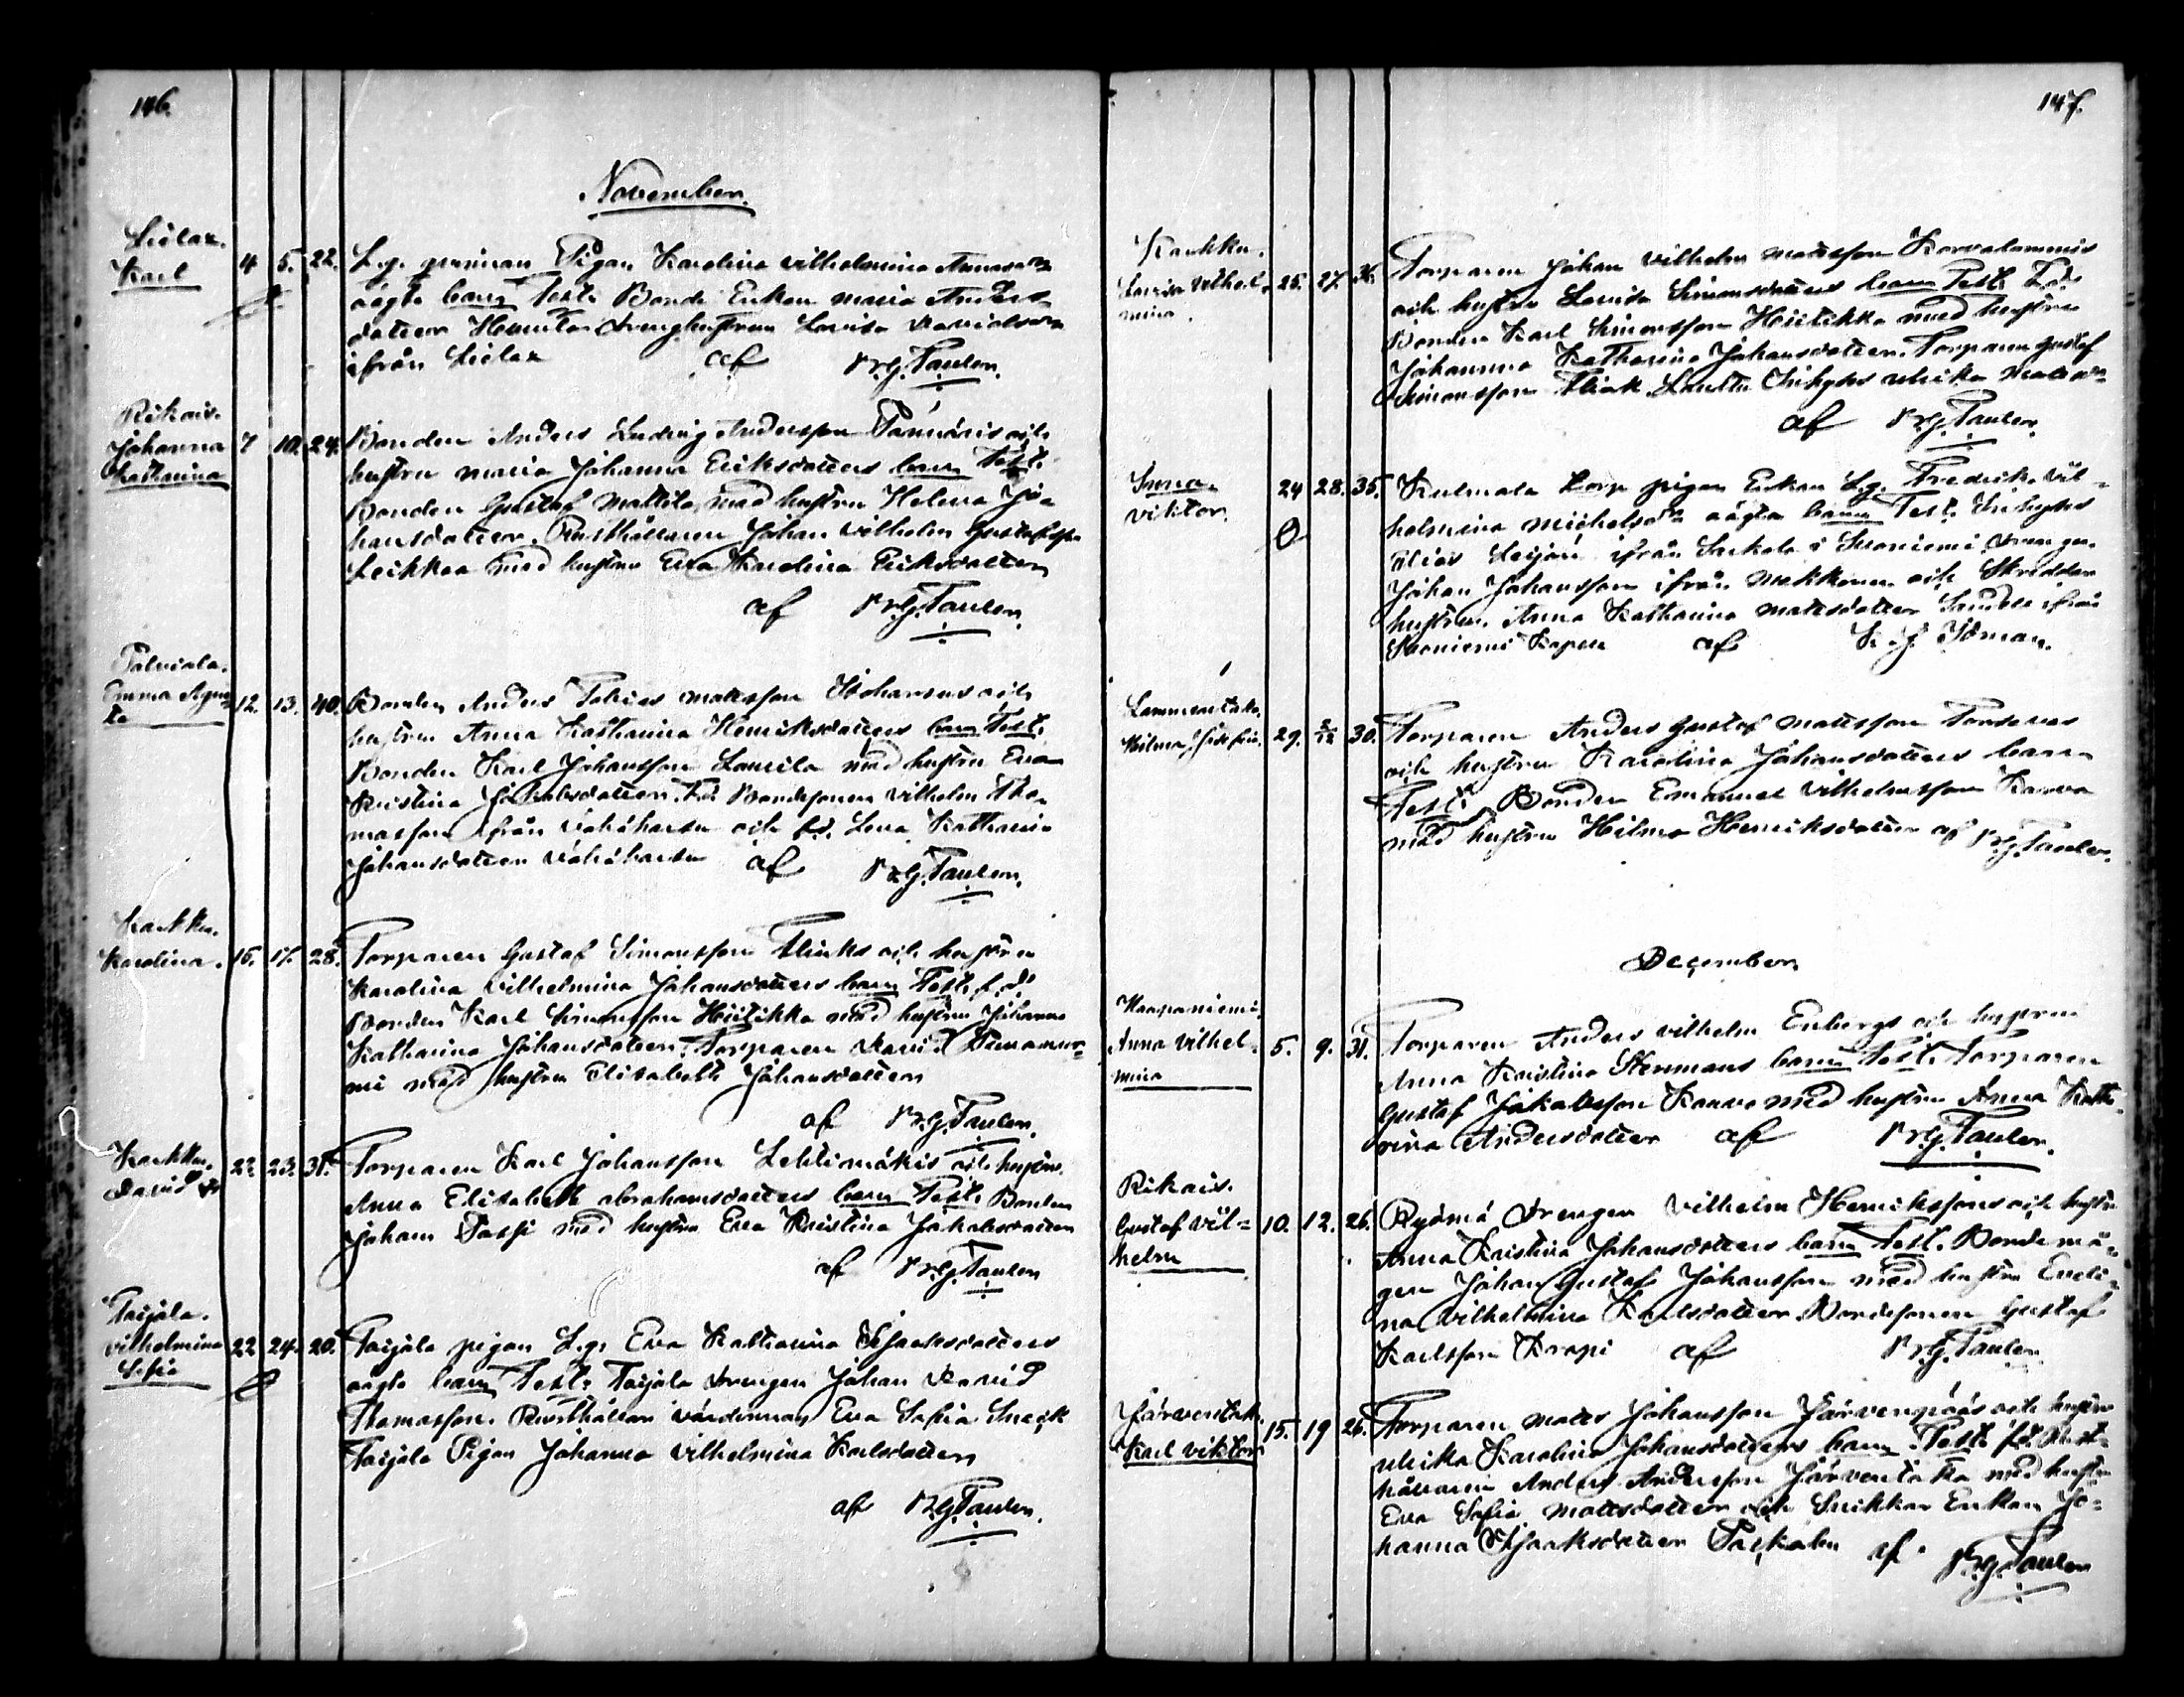 146.
November.
Karl
4 5. 22.
Pigan Karolina Vilhelmina
oägta barn Test. Bonde Enkan Maria Anders
dotter Drenghustrun Lovisa
ifrån af P.G. Taulen.
Rikais.
Johanna
Katharina
7 10. 24.
Bonden Anders Ludvig Andersson och
hustru Maria Johanna Eriksdotters barn Test.
Bonden Gustaf Mattila med hustru Helena Jo-
hansdotter. Rusthållaren Johan Vilhelm Gustafsson
Leikkaa med hustru Eva Karolina Eriksdotter
af P.G. Taulen.
Palviala.
Emma Agna-
ta
12. 13. 40.
Bonden Anders Tobias Mattsson och
hustru Anna Katharina Henriksdotters barn Test.
Bonden Karl Johansson Laurila med hustru Eva
Kristina Jakobsdotter. F.d. Bondesonen Vilhelm Tho-
masson ifrån Vähäharsu och f.d. Lena Katharina
Johansdotter Vähäharsu af P.G. Taulen.
Karkku.
Karolina.
15. 17. 28.
Torparen Gustaf Simonsson Flinks och hustrun
Karolina Vilhelmina Johansdotters barn Test. f.d.
Bonden Karl Simonsson Hiitikko med hustru Johanna
Katharina Johansdotter. Torparen David
med hustrun Elisabeth Johansdotter
af P.G. Taulen.
Karkku.
David
22 23. 31.
Torparen Karl Johansson Lehtimäkis och hustru
Anna Elisabeth Abrahamsdotters barn Test. Bonden
Johan Sassi med hustru Eva Kristina Jakobsdotter
af P.G. Taulen
Taijala.
Vilhelmina
Sofia
22 24. 20.
Taijala pigan L.g. Eva Katharina Isaaksdotters
oägta barn Test. Taijala Drengen Johan David
Thomasson. Rusthållare värdinnan Eva Sofia Sneck
Taijala Pigan Johanna Vilhelmina Karlsdotter
af P.G. Taulen.
147.
Karkku.
Lovisa Vilhel-
mina.
25. 27. 36.
Torparen Johan Vilhelm Mattsson
och hustru Lovisa Simonsdotters barn Test. F.d.
Bonden Karl Simonsson Hiitikko med hustru
Johanna Katharina Johansdotter. Torparen Gustaf
Simonsson Flink Inhyses Ulrika
af P.G. Taulen.
Viktor.
24 28. 35.
Kulmala Torp pigan Enkan L.g. Fredrika Vil-
helmina Michelsdr oägta barn Test. Inhyses
Elias ifrån Sarkola i Suoniemi, Drengen
Johan Johansson ifrån Makkonen och Skreddar
hustrun Anna Katharina Mattsdotter ifrån
Suoniemi Kapell af K. J. Idman.
Lammentaka.
Hilma Josefina.
29. 2/12 30.
Torparen Anders Gustaf Mattsson
och hustrun Karolina Johansdotters barn
Test. Bonden Emanuel Vilhelmsson Karva
med hustru Hilma Henriksdotter af P.G. Taulen.
December.
Haapaniemi.
Anna Vilhel-
mina
5. 9. 31.
Torparen Anders Vilhelm Enbergs och hustrun
Anna Kristina Hermans barn Test. Torparen
Gustaf Jakobsson Kauvo med hustru Anna Katha-
rina Andersdotter af P.G. Taulen.
Rikais.
Gustaf Vil-
helm
10. 12. 26.
Ryömä Drengen Vilhelm Henrikssons och hustru
Anna Kristina Johansdotters barn Test. Bonde må-
gen Johan Gustaf Johansson med hustru Eveli-
na Vilhelmina Karlsdotter. Bondesonen Gustaf
Karlsson Krapi af P.G. Taulen.
Järventak.
Karl Viktor
15. 19 26.
Torparen Matts Johansson Järvenpääs och hustru
Ulrika Karolina Johansdotters barn. Test. f.d. Rust-
hållaren Anders Andersson Järventaka med hustru
Eva Sofia Mattsdotter och Snikkar Enkan Jo-
hanna Isaaksdotter af P.G. Taulen